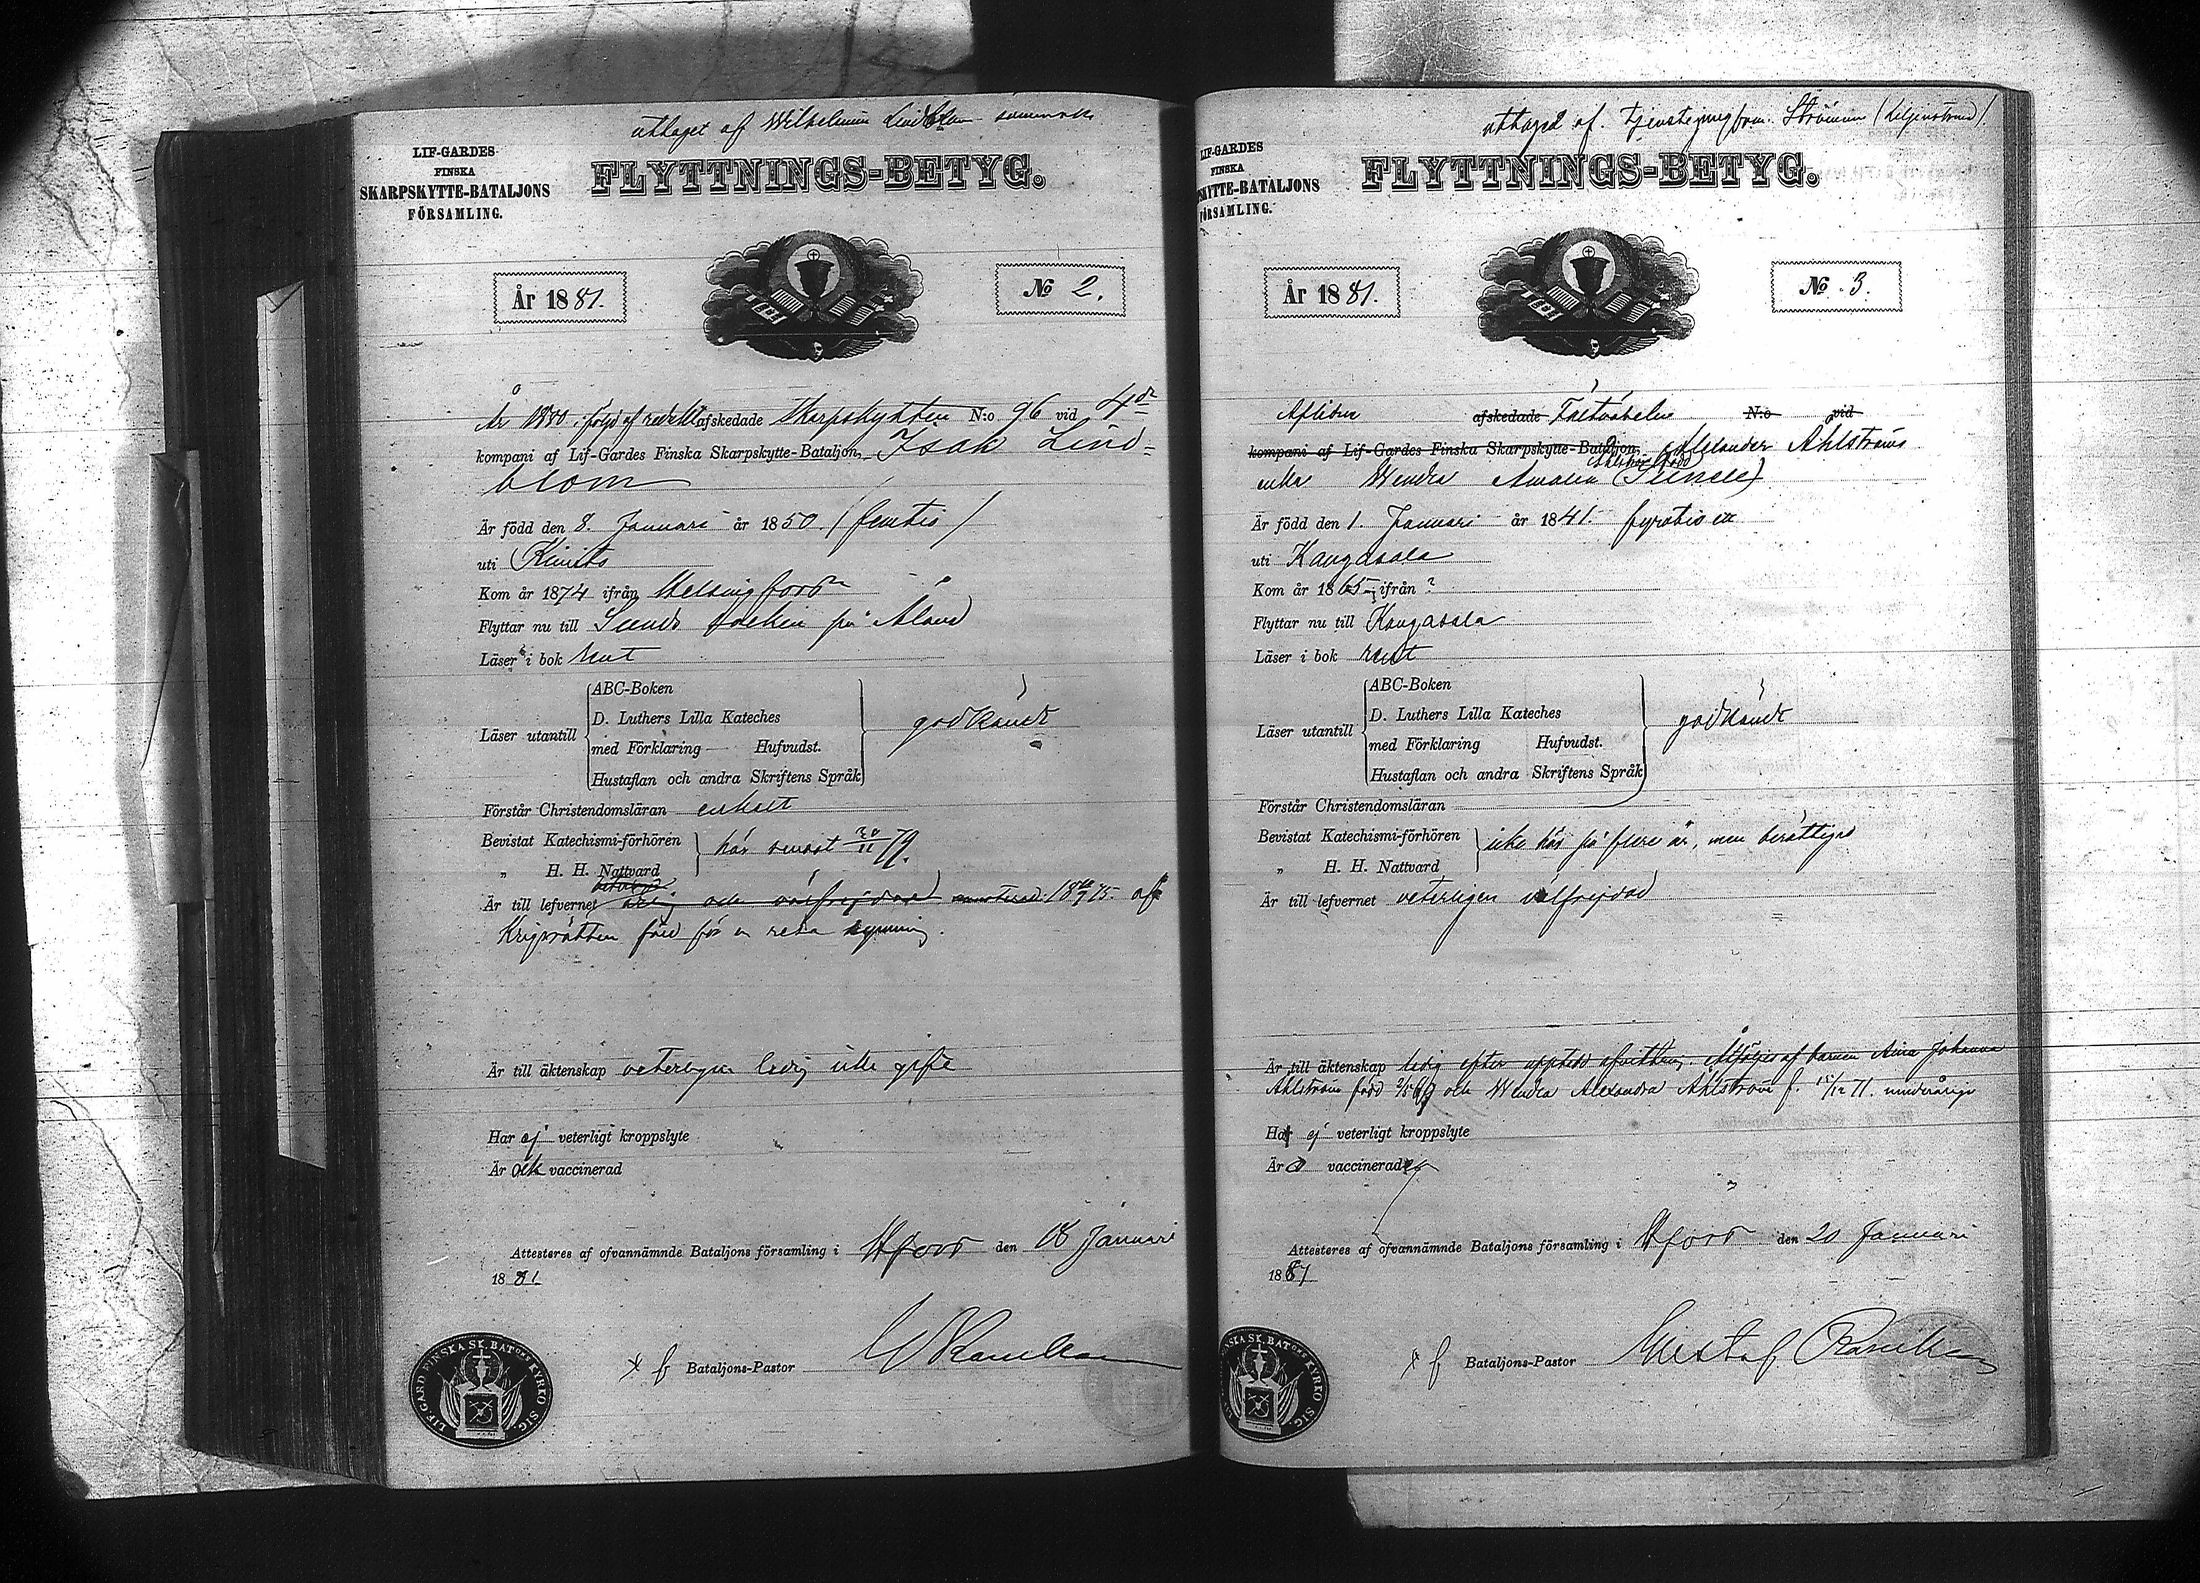 uttaget af Wilhelmina Lindblom
LIF-GARDES
FINSKA
SKARPSKYTTE-BATALJONS
FÖRSAMLING.
FLYTTNINGS-BETYG.
År 1881.
No 2.
År 1880 i följd af afskedade Skarpskytten N:o 96 vid 4de
kompani af Lif-Gardes Finska Skarpskytte-Bataljon Isak Lind=
blom
Är född den 8. Januari år 1850 (femtio)
uti Kimito
Kom år 1874 ifrån Helsingfors
Flyttar nu till Sunds socken på Åland
Läser i bok rent
Läser utantill
ABC-Boken
D. Luthers Lilla Kateches
med Förklaring Hufvudst.
Hustaflan och andra Skriftens Språk
godkändt
Förstår Christendomsläran enkelt
Bevistat Katechismi-förhören
„ H. H. Nattvard
här senast 20/11 79.
Är till lefvernet ärlig och välfrejdad 1875 af
Krigsrätten för en resa rymning.
Är till äktenskap veterligen ledig icke gift
Har ej veterligt kroppslyte
Är ock vaccinerad
Attesteras af ofvannämnde Bataljons församling i Hfors den 18 Januari
1881
Bataljons-Pastor
LIF.GARD.FINSKA SK.BATONS KYRKO SIG.
uttaget af
LIF-GARDES
FINSKA
SKYTTE-BATALJONS
FÖRSAMLING.
FLYTTNINGS-BETYG.
År 1881.
No 3.
Aflidne afskedade Fältväbeln N:o vid
kompani af Lif-Gardes Finska Skarpskytte-Bataljon Alexander Åhlströms
enka Wendla Amalia
Är född den 1. Januari år 1841. fyratio ett
uti Kangasala
Kom år 1865 ifrån ?
Flyttar nu till Kangasala
Läser i bok rent
Läser utantill
ABC-Boken
D. Luthers Lilla Kateches
med Förklaring Hufvudst.
Hustaflan och andra Skriftens Språk
godkändt
Förstår Christendomsläran
Bevistat Katechismi-förhören
„ H. H. Nattvard
icke här på flere år, men berättigad
Är till lefvernet veterligen välfrejdad
Är till äktenskap ledig efter Åtföljes af barnen Aina Johanna
Åhlström född och Wendla Alexandra Åhlström f. 15/12 71. minderåriga
Har ej veterligt kroppslyte
Är vaccinerad
Attesteras af ofvannämnde Bataljons församling i Hfors den 20 Januari
1881
Bataljons-Pastor Gustaf
FINSKA SK.BATONS KYRKO SIG.